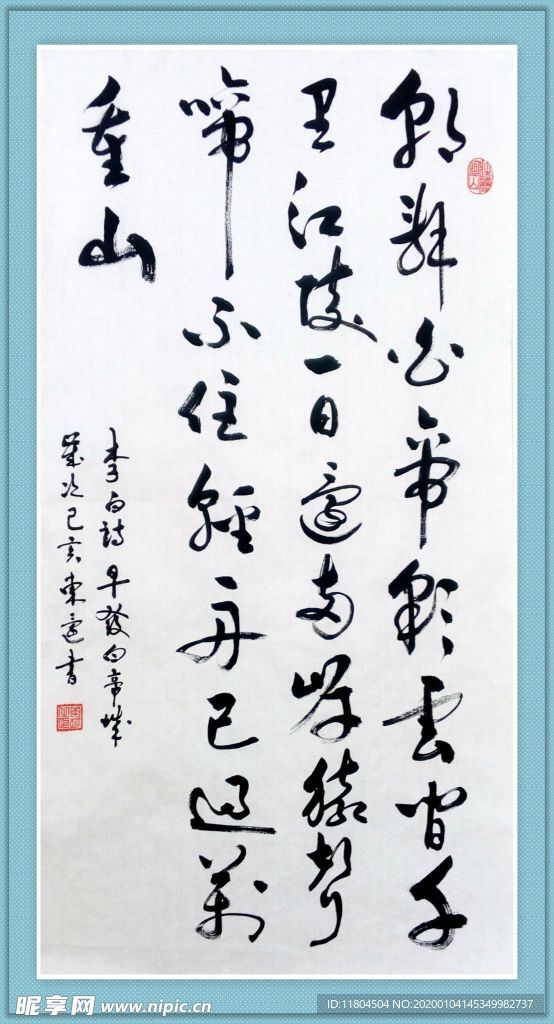 朝辭白帝彩雲間千
里江陵一日還兩岸猿聲
啼不住輕舟已過萬
重山
李白詩早發白帝城
歲次己亥東書
昵享网 www.nipic.cn
ID:11804504 NO:20200104145349982737